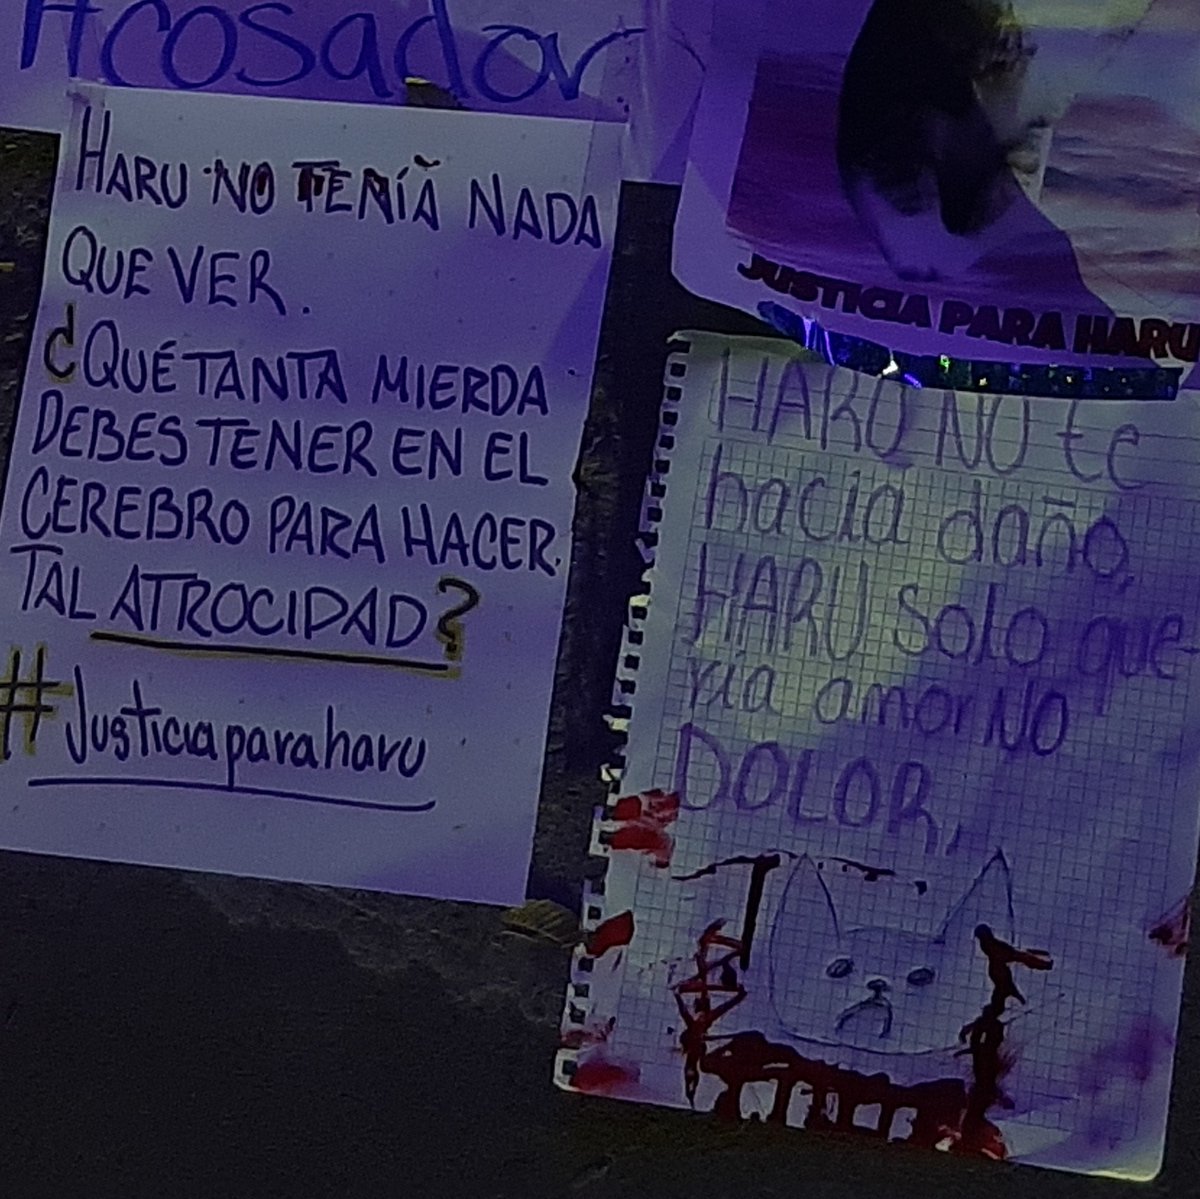 Acosador.
HARU NO TENÍA NADA
QUE VER.
¿QUÉ TANTA MIERDA
DEBES TENER EN EL
CEREBRO PARA HACER
TAL ATROCIDAD?
#Justiciaparaharu
JUSTICIA PARA HARU
HARU NO te
hacia daño,
HARU solo que-
ria amor NO
DOLOR,